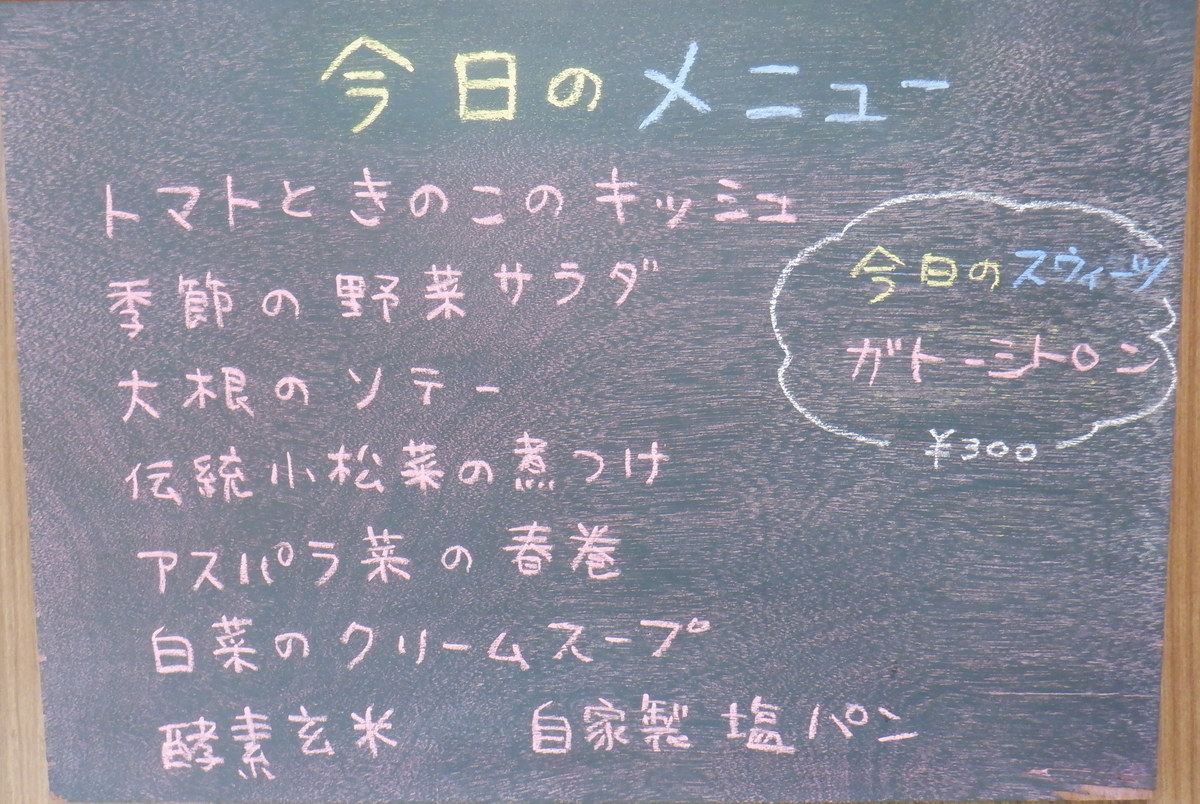 今日のメニュー
トマトときのこのキッシュ
季節の野菜サラダ
大根のソテー
伝統小松菜の煮つけ
アスパラ菜の春巻
白菜のクリームスープ
酵素玄米 自家製塩パン
今日のスウィーツ
ガトーシトロン
¥300